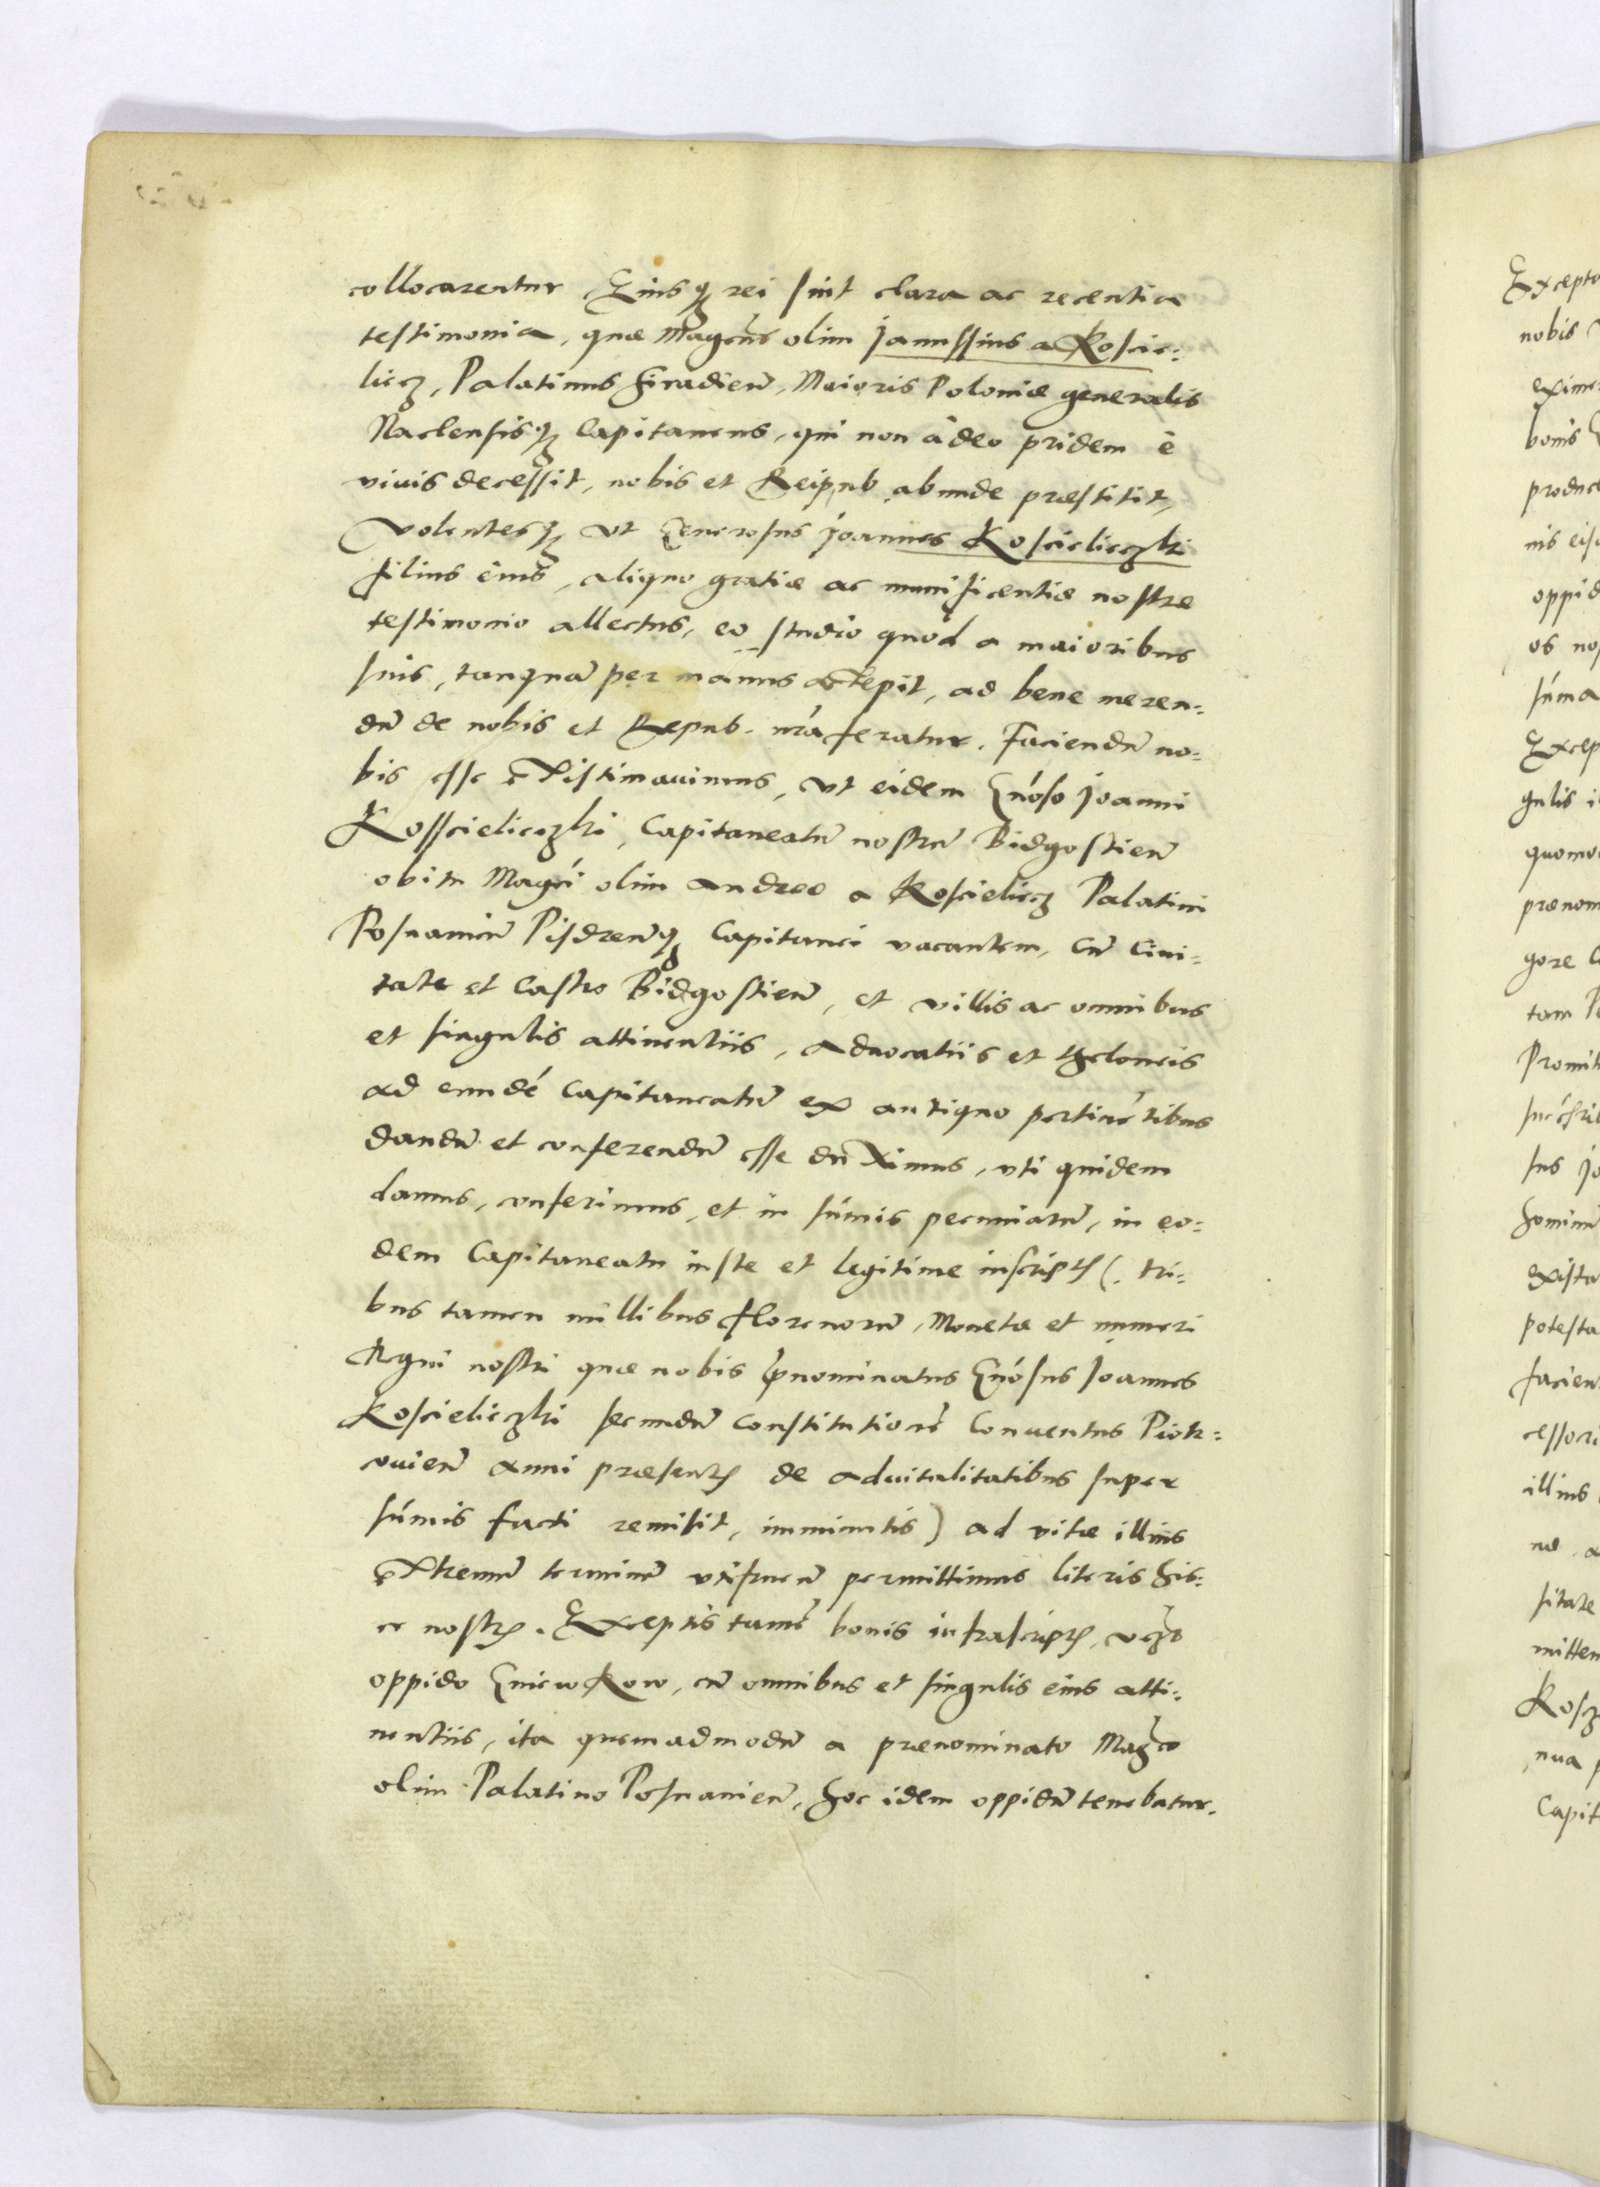 collocarentur Eiusq3 rei sint clara ac recentia
testimonia, quæ Magcus olim Janussius a Koscie:
liecz, Palatinus Siradien̄, Maioris Poloniæ generalis
Naclensisq3 Capitaneus, qui non adeo pridem è
viuis decessit, nobis et Reipub abunde præstitit,
Volentesq3 vt Generosus Joannes Koscielieczki
filius eius, aliquo gratiæ ac munificentiæ nostræ
testimonio allectus, eo studio quod a maioribus
suis, tanquā per manus accepit, ad bene meren:
dū de nobis et Repub. nrā feratur. Faciendū no:
bis esse existimauimus, vt eidem Gnóso Joanni
Kosscielieczki, Capitaneatū nostrū Bidgostien̄
obitu Magci olim Andreæ a Koscieliecz Palatini
Posnanien̄ Pisdren̄q3 Capitanei vacantem, cū Ciui:
tate et Castro Bidgostien̄, et villis ac omnibus
et singulis attinentiis, aduocatiis et theloneis
ad eundé Capitaneatū ex antiquo pertinētibus
dandū et conferendū esse duximus, vti quidem
damus, conferimus, et in súmis pecuniarū, in eo:
dem Capitaneatu iuste et legitime inscriptis (. tri:
bus tamen millibus florenorū, Monetæ et numeri
Regni nostri quæ nobis p̄nominatus Gnósus Joannes
Koscieliczki secundū Constitutionē Conuentus Piotr:
couien̄ anni præsentis de aduitalitatibus super
súmis facti remisit, imminutis) ad vitæ illius
extremū terminū vtifruen̄ permittimus literis his:
ce nostris. Exceptis tamē bonis infrascriptis, vcz
oppido Gniewkow, cū omnibus et singulis eius atti:
nentiis, ita quemadmodū a prænominato Magco
olim Palatino Posnanien̄, hoc idem oppidū tenebatur.
Excepto
nobis
eximer
bonis
produc
nis eis
oppid
os no
súma
Excep
gulis i
quomo
prænom
gore
tam
Promit
sus Jo
hominū
exista
potesta
facien
cessori
illius
sitate
mitten
Kosc
nua p
Capit